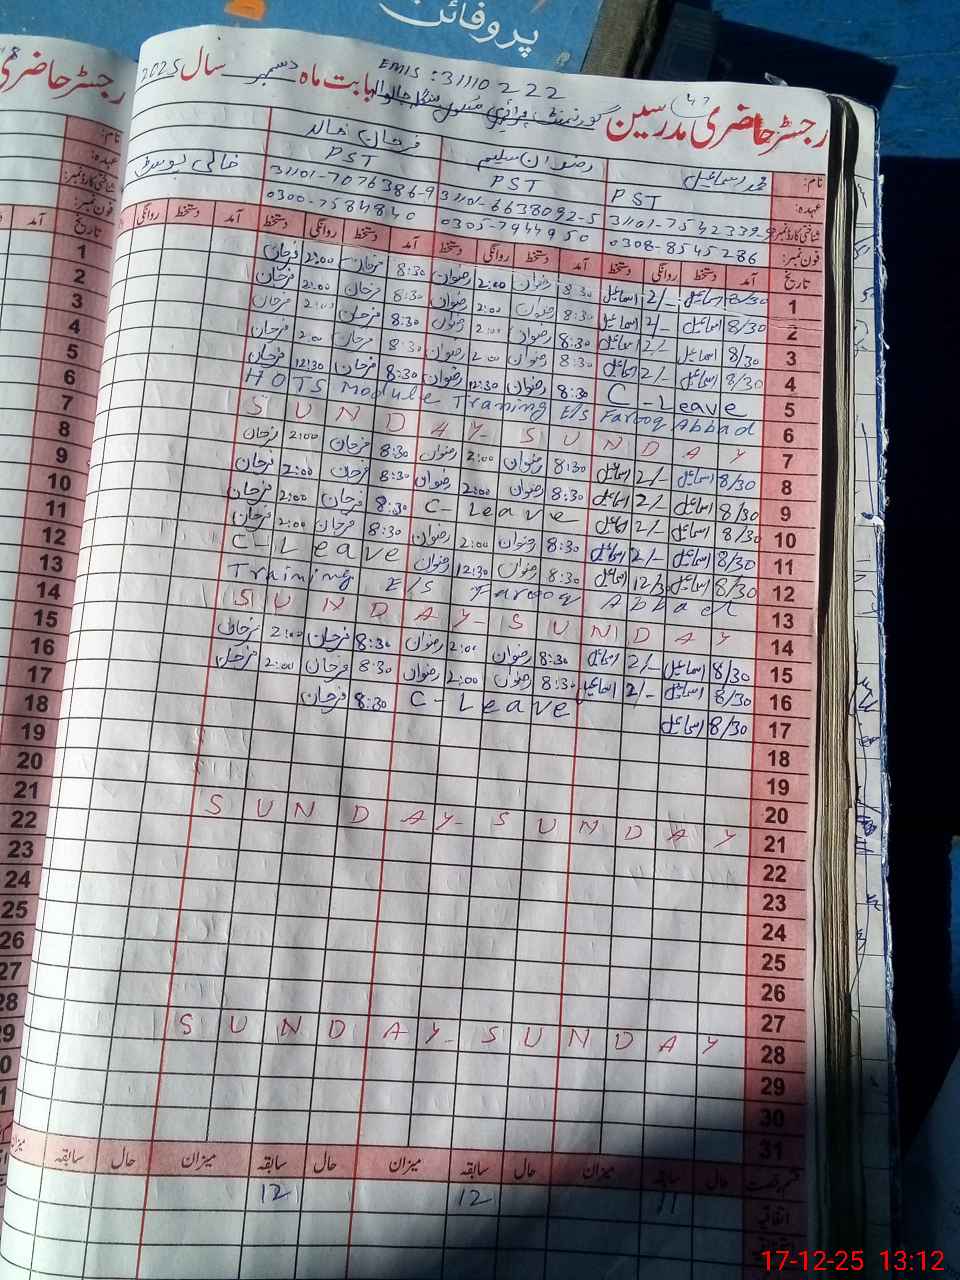 پروفائن
رجسٹر حاضری مدرسین
EMIS : 31110222
گورنمنٹ پرائمری سکول
بابت ماہ دسمبر سال 2025
نام: محمد اسماعیل رضوان سلیم فرحان خالد
عہدہ: PST PST PST خالی پوسٹ
شناختی کارڈ نمبر: 31101-7542339-9 31101-6638092-5 31101-7076386-9
فون نمبر: 0308-8545286 0305-7944950 0300-7584840
تاریخ آمد دستخط روانگی دستخط آمد دستخط روانگی دستخط آمد دستخط روانگی دستخط آمد دستخط روانگی دستخط
1 8/30 اسماعیل 2/- اسماعیل 8:30 رضوان 2:00 رضوان 8:30 فرحان 2:00 فرحان
2 8/30 اسماعیل 2/- اسماعیل 8:30 رضوان 2:00 رضوان 8:30 فرحان 2:00 فرحان
3 8/30 اسماعیل 2/- اسماعیل 8:30 رضوان 2:00 رضوان 8:30 فرحان 2:00 فرحان
4 8/30 اسماعیل 2/- اسماعیل 8:30 رضوان 2:00 رضوان 8:30 فرحان 2:00 فرحان
5 C-Leave 8:30 رضوان 12:30 رضوان 8:30 فرحان 12:30 فرحان
6 HOTS Module Training E/S Farooq Abbad
7 SUNDAY- SUNDAY
8 8/30 اسماعیل 2/- اسماعیل 8:30 رضوان 2:00 رضوان 8:30 فرحان 2:00 فرحان
9 8/30 اسماعیل 2/- اسماعیل 8:30 رضوان 2:00 رضوان 8:30 فرحان 2:00 فرحان
10 8/30 اسماعیل 2/- اسماعیل C-Leave 8:30 فرحان 2:00 فرحان
11 8/30 اسماعیل 2/- اسماعیل 8:30 رضوان 2:00 رضوان 8:30 فرحان 2:00 فرحان
12 8/30 اسماعیل 12/30 اسماعیل 8:30 رضوان 12:30 رضوان C-Leave
13 Training E/S Farooq Abbad
14 SUNDAY- SUNDAY
15 8/30 اسماعیل 2/- اسماعیل 8:30 رضوان 2:00 رضوان 8:30 فرحان 2:00 فرحان
16 8/30 اسماعیل 2/- اسماعیل 8:30 رضوان 2:00 رضوان 8:30 فرحان 2:00 فرحان
17 8/30 اسماعیل C-Leave 8:30 فرحان
18
19
20
21 SUNDAY- SUNDAY
22
23
24
25
26
27
28 SUNDAY- SUNDAY
29
30
31
قسم رخصت حال سابقہ میزان حال سابقہ میزان حال سابقہ میزان حال سابقہ
اتفاقیہ 11 12 12
17-12-25 13:12